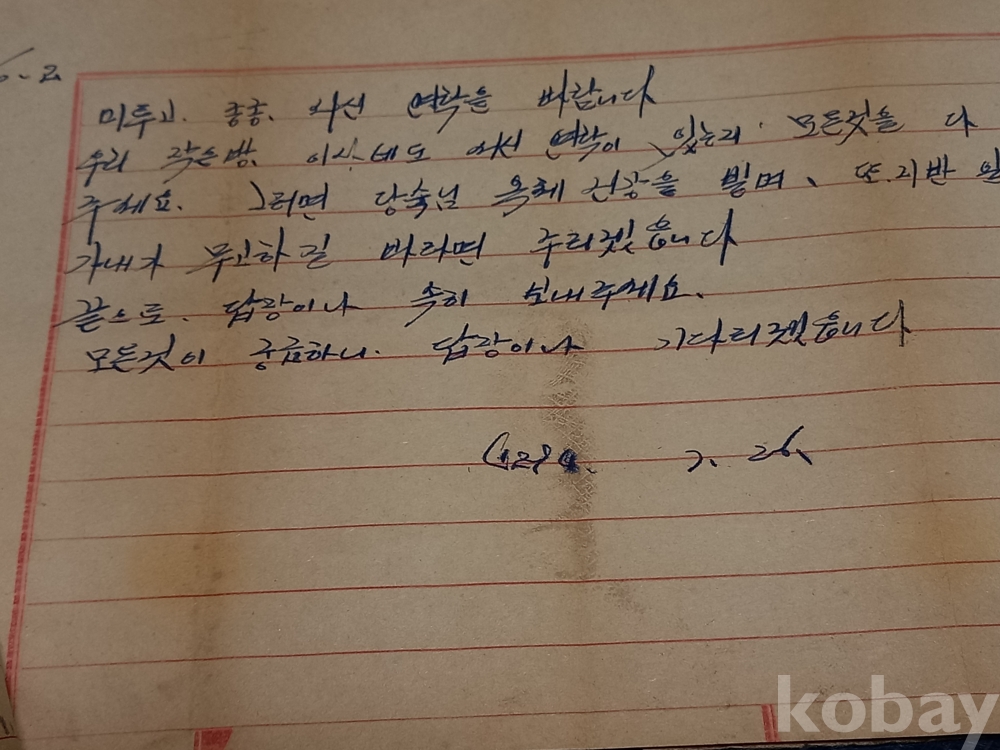 6.2
미루고. 종종. 서신 연락을 바랍니다
우리 작은방. 이사네도 서신 연락이 있는지. 모든것을 다
주세요. 그러면 당숙님 옥체 건강을 빌며、 또. 지반
가내가 무고하길 바라면 주리겠읍니다
끝으로. 답장이나 속히 보내주세요.
모든것이 궁금하니. 답장이나 기다리겠읍니다
7. 26.
kobay